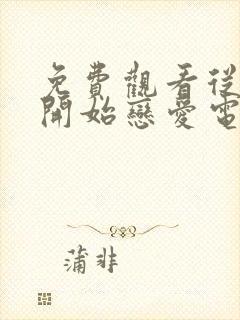 免費觀看從
開始戀愛電
蒲非